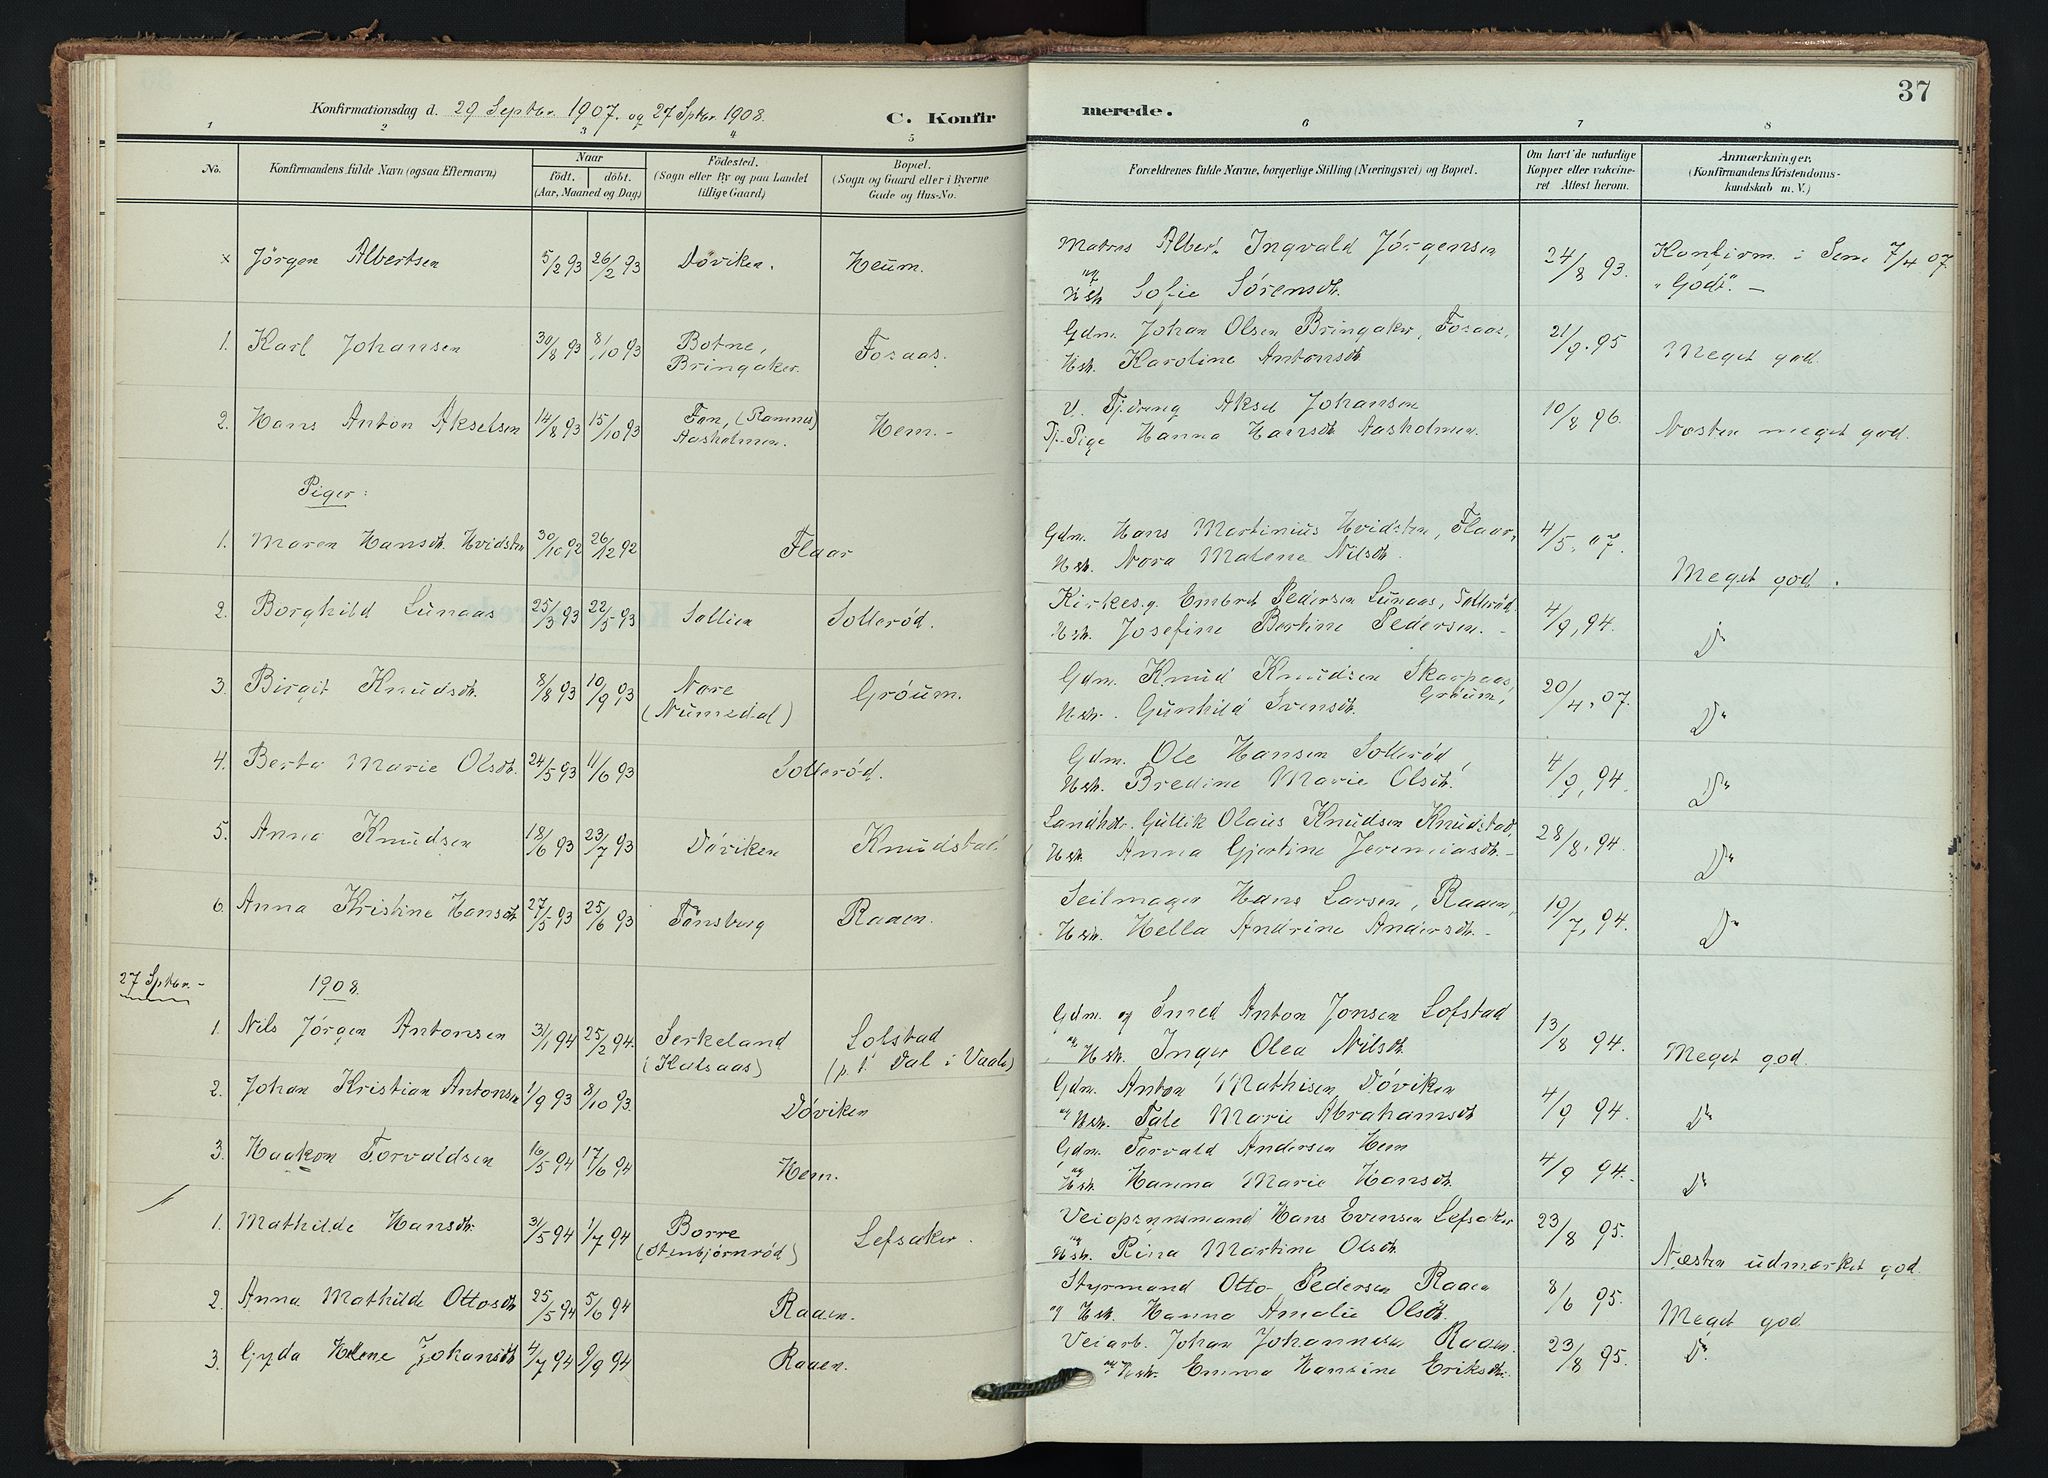 37
Konfirmationsdag d. 29 Septbr. 1907. og 27 Sptbr. 1908.
C. Konfirmerede.
1 2 3 4 5 6 7 8
No.
Konfirmandens fulde Navn (ogsaa Efternavn)
Naar
födt. döbt.
(Aar, Maaned og Dag)
Födested.
(Sogn eller By og paa Landet
tillige Gaard)
Bopæl.
(Sogn og Gaard eller i Byerne
Gade og Hus-No.
Forældrenes fulde Navne, borgerlige Stilling (Næringsvei) og Bopæl.
Om havt de naturlige
Kopper eller vakcine-
ret Attest herom.
Anmærkninger.
(Konfirmandens Kristendoms-
kundskab m. V.)
x Jörgen Albertsen 5/2 93 26/2 93 Döviken. Heum.
Matros Albert Ingvald Jørgensen
og Hst. Sofie Sørensdt. 24/8 93.
Konfirm. i Sem 7/4 07.
"Godt". —
1. Karl Johansen 30/8 93 8/10 93 Botne, Bringaker. Fosaas.
Gdm. Johan Olsen Bringaker, Fosaas,
Hst. Karoline Antonsdt. 21/9. 95 Meget god.
2. Hans Anton Akselsen 14/8 93 15/10 93 Fon, (Ramnes) Aasholmen. Hem. -
U. Tjdreng Aksel Johansen
Tj-Pige Hanna Hansdt. Aasholmen. 10/8 96. Næsten meget god.
Piger:
1. Maren Hansdt. Hvidsten 30/10 92 26/12 92 Flaar
Gdm. Hans Martinius Hvidsten, Flaar,
Hst. Nora Malene Nilsdt. 4/5, 07. Meget god.
2. Borghild Lunaas 25/3 93 22/5 93 Sollien Solleröd.
Kirkes.g. Embret Pedersen Lunaas, Solleröd.
Hst. Josefine Bertine Pedersen. - 4/9, 94. Do
3. Birgit Knudsdt. 8/8 93 10/9 93 Nore (Numedal) Gröum.
Gdm. Knud Knudsen Skarpaas,
Gröum,
Hst. Gunhild Svensdt. 20/4, 07. Do
4. Berta Marie Olsdt. 24/5 93 11/6 93 Solleröd.
Gdm. Ole Hansen Solleröd,
Hst. Bredine Marie Olsdt. 4/9, 94. Do
5. Anna Knudsen 18/6 93 23/7 93 Döviken Knudstad.
Landhdr. Gullik Olaus Knudsen Knudstad,
Hst. Anna Gjertine Jeremiasdt. - 28/8, 94. Do
6. Anna Kristine Hansdt. 27/5 93 25/6 93 Tönsberg Raaen.
Seilmager Hans Larsen, Raaen,
Hst. Hella Andrine Andersdt. - 19/7, 94. Do
27 Sptbr. - 1908.
1. Nils Jørgen Antonsen 31/1 94 25/2 94. Serkeland (Kalsaas) Lofstad (p. t. Dal i Vaale)
Gdm. og Smed Anton Jonsen Lofstad
og Hst. Inger Olea Nilsdt. 13/8 94. Meget god.
2. Johan Kristian Antonsen 1/9 93 8/10 93. Döviken
Gdm. Anton Mathisen Döviken
og Hst. Tale Marie Abrahamsdt. 4/9 94. Do
3. Haakon Torvaldsen 16/5 94 17/6 94 Hem.
Gdm. Torvald Andersen Hem
og Hst. Hanna Marie Hansdt. 4/9 94. Do
1. Mathilde Hansdt. 31/5 94 1/7 94 Borre (Stenbjörnröd) Lefsaker.
Veiopsynsmand Hans Evensen Lefsaker
og Hst. Rina Martine Olsdt. 23/8 95. Næsten udmærket god.
2. Anna Mathilde Ottosdt. 25/5 94 5/6 94 Raaen.
Styrmand Otto Pedersen Raaen
og Hst. Hanna Amalie Olsdt. 8/6 95. Meget god
3. Gyda Helene Johansdt. 4/7 94 9/9 94 Raaen.
Veiarb. Johan Johannesen Raaen.
og Hst. Emma Hansine Eriksdt. 23/8 95. Do